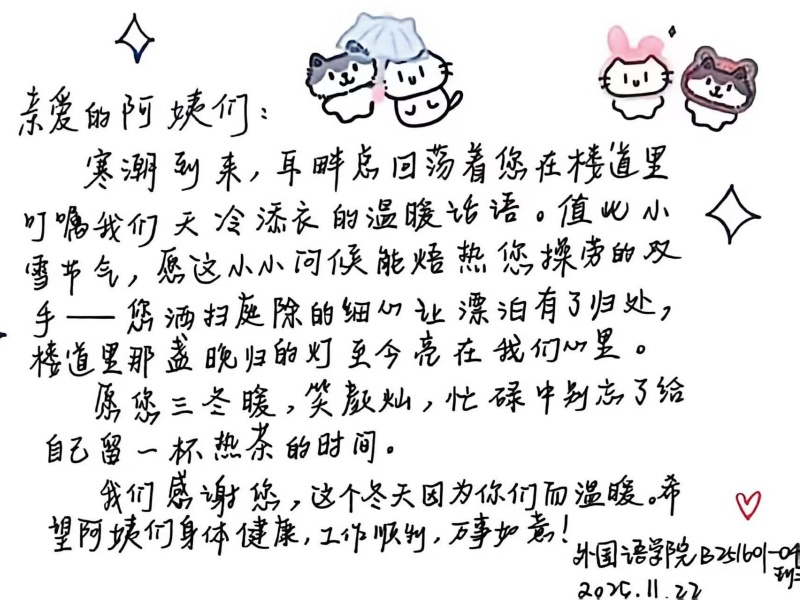 亲爱的阿姨们：
寒潮到来，耳畔总回荡着您在楼道里
叮嘱我们天冷添衣的温暖话语。值此小
雪节气，愿这小小问候能焐热您操劳的双
手——您洒扫庭除的细心让漂泊有了归处，
楼道里那盏晚归的灯至今亮在我们心里。
愿您三冬暖，笑颜灿，忙碌中别忘了给
自己留一杯热茶的时间。
我们感谢您，这个冬天因为你们而温暖。希
望阿姨们身体健康，工作顺利，万事如意！
外国语学院B251601-04
班
2025.11.22